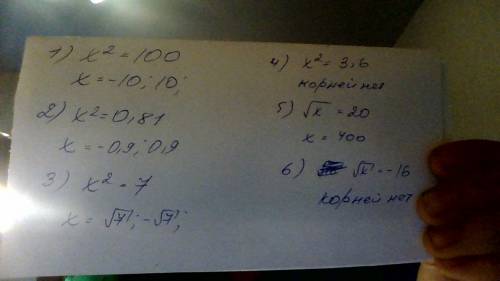 1) x² = 100
x = -10; 10;
2) x² = 0,81
x = -0,9; 0,9
3) x² = 7
x = √7; -√7;
4) x² = 3,6
корней нет
5) √x = 20
x = 400
6) √x = -16
корней нет